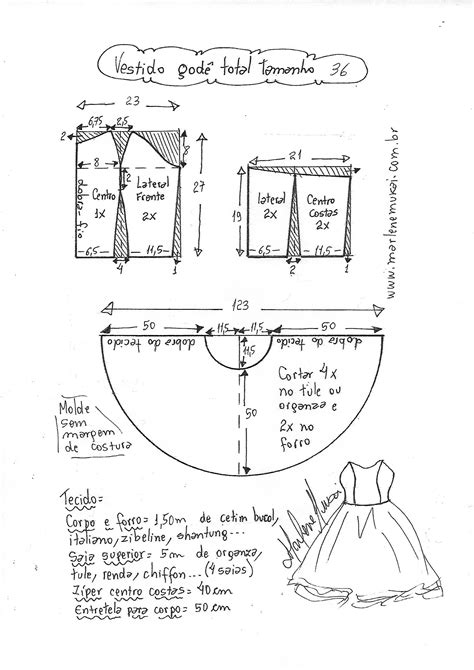 Vestido godê total tamanho 36
23
6,75 2,5
2
8
8
2
27
dobra do fio
Centro
1x
Lateral
Frente
2x
6,5 11,5
4 1
21
19
lateral
2x
Centro
Costas
2x
6,5 11,5
2 1
www.marlenemukai.com.br
123
50 11,5 11,5 50
dobra do tecido dobra do tecido
11,5
50
Cortar 4x
no tule ou
organza e
2x no
forro
Molde
sem
margem
de costura
Tecido=
Corpo e forro= 1,50m de cetim bucol,
italiano, zibeline, shantung...
Saia superior= 5m de organza,
tule, renda, chiffon... (4 saias)
Zíper centro costas= 40cm
Entretela para corpo= 50cm
Marlene Mukai